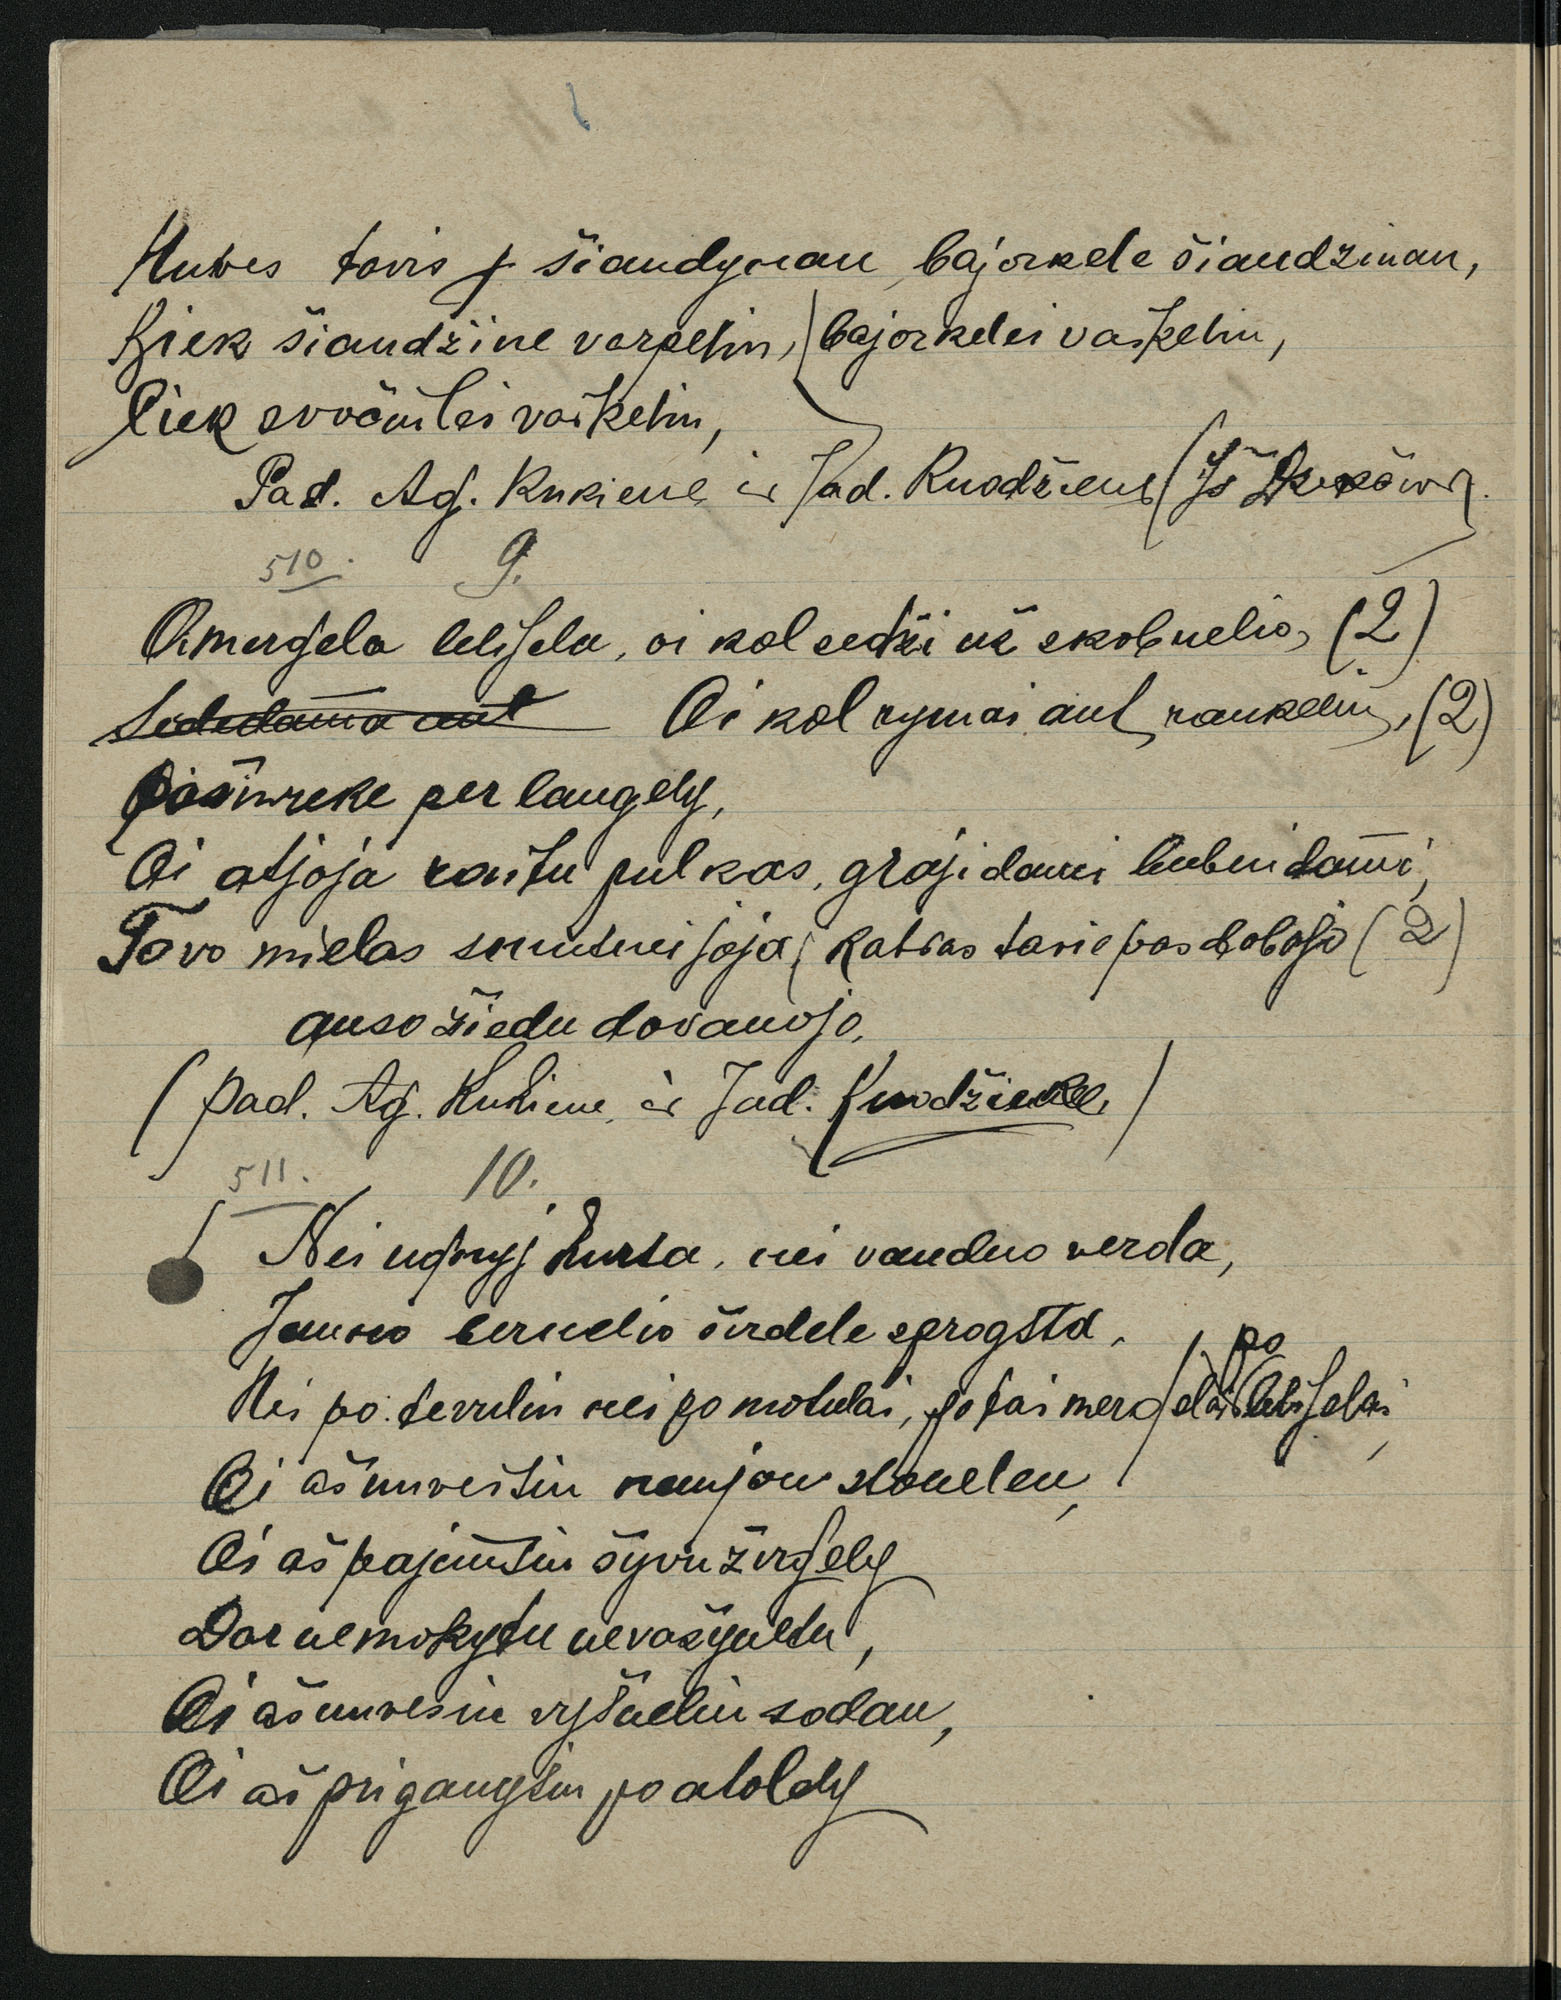 Nuves tavis į šiandynan, bajorkele šiandzinan,
Kiek šiandzine varpelin, bajorkelei vaikelin,
Tiek svočiulei vaikelin,
Pad. Ag. Kukiene ir Jad. Kuodžiene (Iš
510. 9.
Oi mergela lelijela, oi kol sedzi už skobnelio, (2)
Sededama ant Oi kol rymai ant rankelių, (2)
pasiwreke per langely,
Oi atjoja raitu pulkas, grajidami bubnidami,
Tavo mielas sumtnei joja, katras tavie padabojo (2)
auso žiedu dovanojo.
(Pad. Ag. Kukiene ir Jad. Kuodžiene)
511. 10.
Nei ugnyj kursta, nei vanduo verda,
Jauno bernelio širdele sprogsta.
Nei po tevulin nei po motulai, po tai mergelai po lelijelai,
Oi aš nuveitin naujon stonelen,
Oi aš pajimtin šyvu žirgely
Dar nemokytu nevažynetu,
Oi aš nuvesin vyšnelin sodan,
Oi aš prigangsin po atoldy